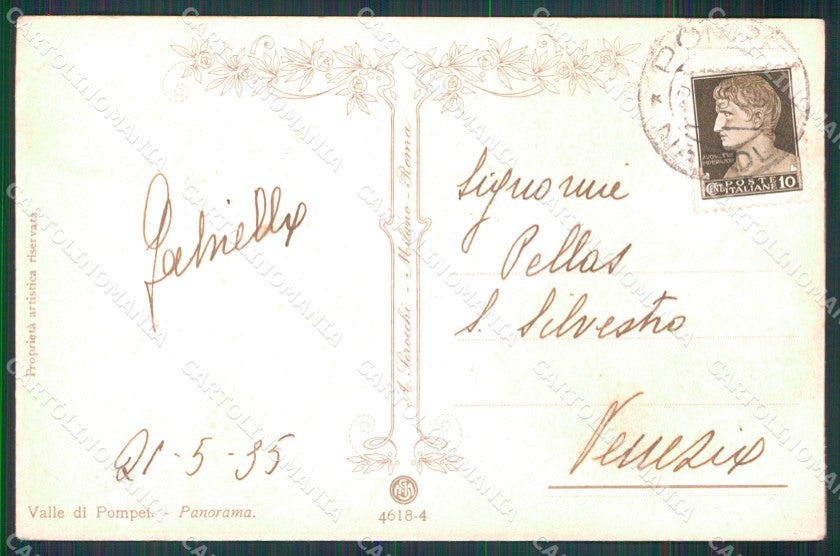 Proprietà artistica riservata
Gabriella
21-5-35
Valle di Pompei. - Panorama.
A. Scrocchi - Milano - Roma
4618-4
POSTE
ITALIANE 10
Signorine
Pellas
S. Silvestro
Venezia
CARTOLINOMANIA